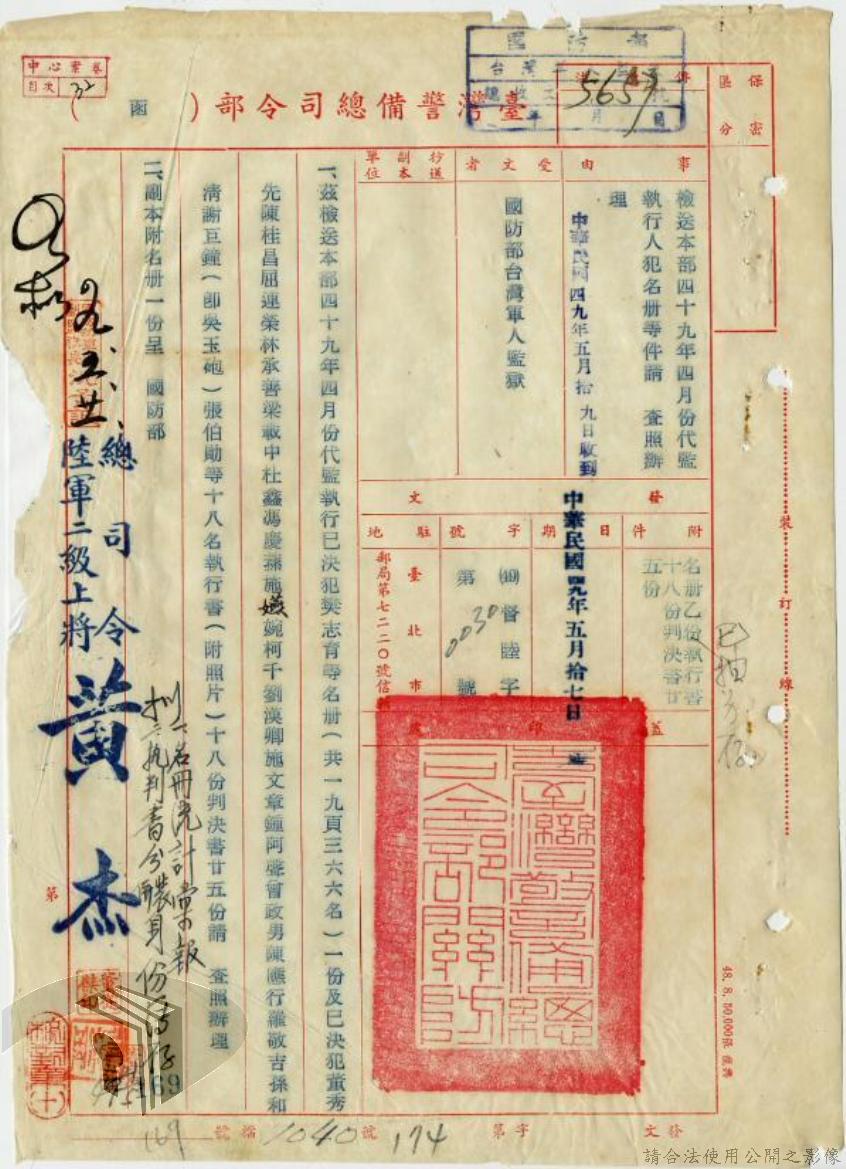 保密
區分
國防部
5657
臺灣警備總司令部（函）
中心案卷
目次 32
事由
檢送本部四十九年四月份代監
執行人犯名册等件請　查照辦
理
中華民國四九年五月拾九日收到
受文者
國防部台灣軍人監獄
抄送副本單位
發文
附件
名册乙份執行書
十八份判決書廿
五份
日期
中華民國四九年五月拾七日
字號
督陸字
第0030號
駐地
臺北市
郵局第七二二〇號信
蓋印
臺灣警備總司令部關防
一、茲檢送本部四十九年四月份代監執行已決犯樊志育等名册（共一九頁三六六名）一份及已決犯董秀
先陳桂昌屈連榮林承善梁載中杜鑫馮慶蓀施婉柯千劉漢卿施文章鍾阿聲曾政男陳應行羅敬吉孫和
清謝巨鐘（卽吳玉砲）張伯勛等十八名執行書（附照片）十八份判決書廿五份請　查照辦理
二、副本附名册一份呈　國防部
總司令
陸軍二級上將 黃杰
擬
一名册統計彙報
第
裝訂線
48. 8. 50,000張
169
發文
字第174號
檔1040號
169
請合法使用公開之影像